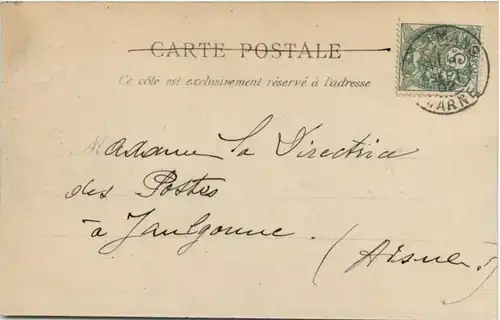 CARTE POSTALE
Ce côté est exclusivement réservé à l'adresse
Madame la Directrice
des Postes
à Jaulgonne. (Aisne.)
MARNE